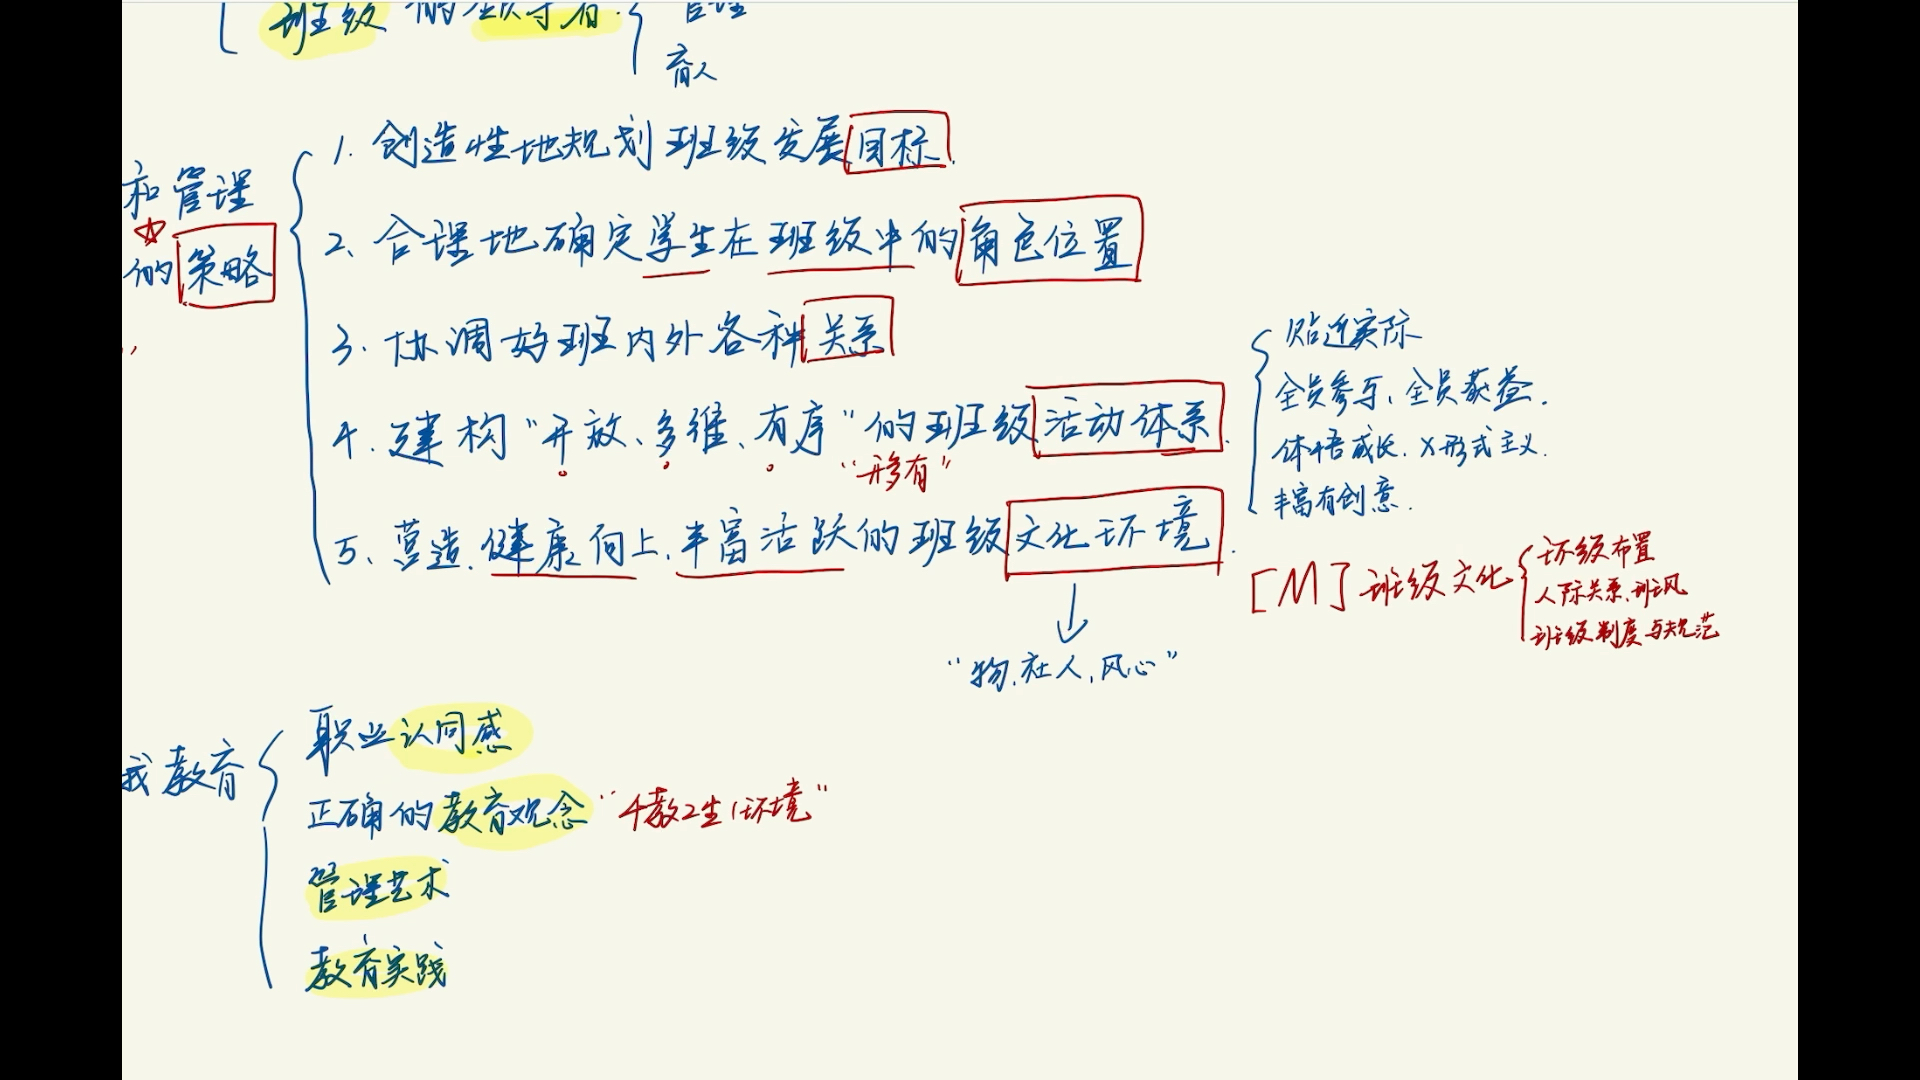 班级的领导者 管理
育人
和管理
的策略
1. 创造性地规划班级发展目标.
2、合理地确定学生在班级中的角色位置
3. 协调好班内外各种关系
4. 建构“开放、多维、有序”的班级活动体系.
“形有”
5、营造.健康向上、丰富活跃的班级文化环境.
贴近实际
全员参与、全员获益.
体悟成长. X形式主义.
丰富有创意.
[M] 班级文化
环级布置
人际关系、班风
班级制度与规范
“物.社人.风心”
我教育
职业认同感
正确的教育观念 “千教2生1环境”
管理艺术
教育实践